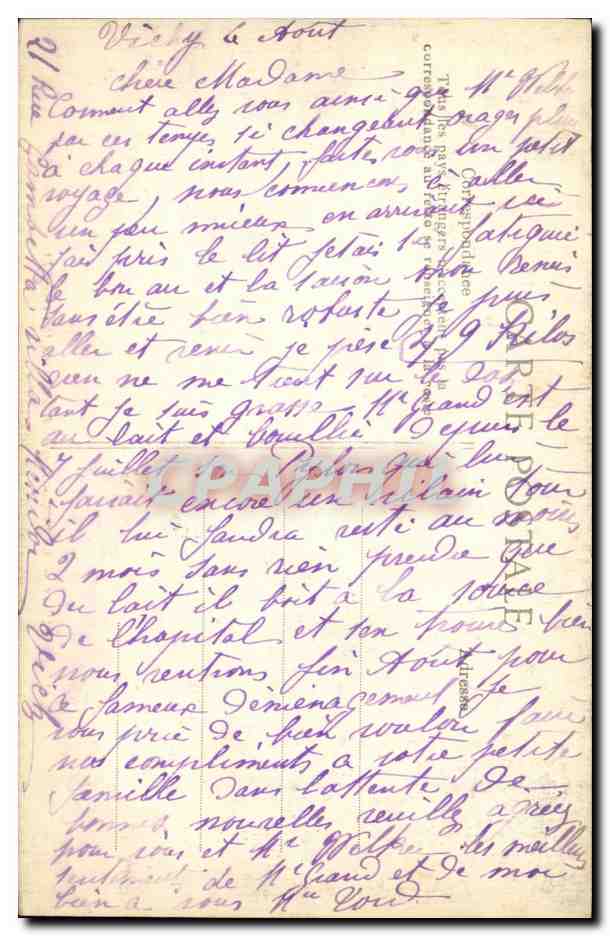 Vichy le Août
Chère Madame
Comment allez vous ainsi que Mr
par ces temps si changeant orages pluie
à chaque instant, faites vous un petit
voyage, nous comencons à aller
un peu mieux en arrivant ici
jais pris le lit jetais si fatiguée
le bon air et la saison mon remis
sans être bien robuste je puis
aller et venir je pèse 49 Kilos
rien ne me tient sur le dos
tant je suis grasse Mr Grand est
au lait et bouillie depuis le
7 Juillet
encore un vilain tour
il lui faudra resté au moins
2 mois sans rien prendre que
du lait il boit a la source
de l'hopital et sen trouve bien
nous rentrons fin Août pour
le fameux déménagement je
vous prie de bien vouloir faire
nos compliments a votre petite
famille dans lattente de
bonnes nouvelles veuillez agréez
pour vous et Mr les meilleurs
sentiments de Mr Grand et de moi
bien a vous Mme
21 Rue Gambetta villa Vichy
CARTE POSTALE
Correspondance
Adresse
Tous les pays étrangers n'acceptent pas la
correspondance au recto se renseigner à la poste
CPAPHIL